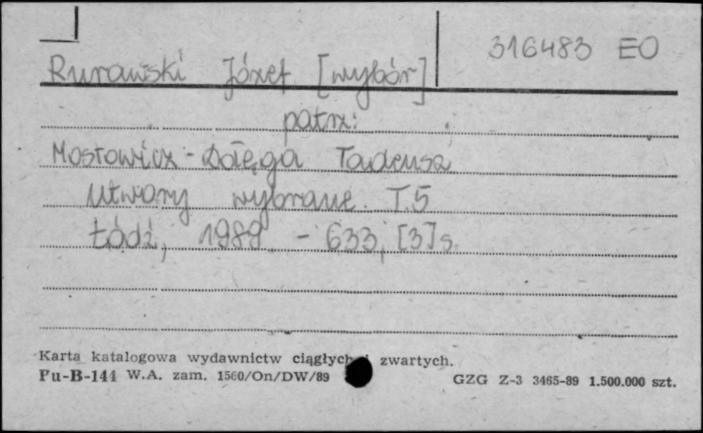 316483 EO
Rurawski Józef [wybór]
patrz:
Mostowicz-Dołęga Tadeusz
Utwory wybrane. T.5
Łódź, 1989 - 633, [3] s.
Karta katalogowa wydawnictw ciągłych i zwartych.
Pu-B-144 W.A. zam. 1560/On/DW/89
GZG Z-3 3465-89 1.500.000 szt.